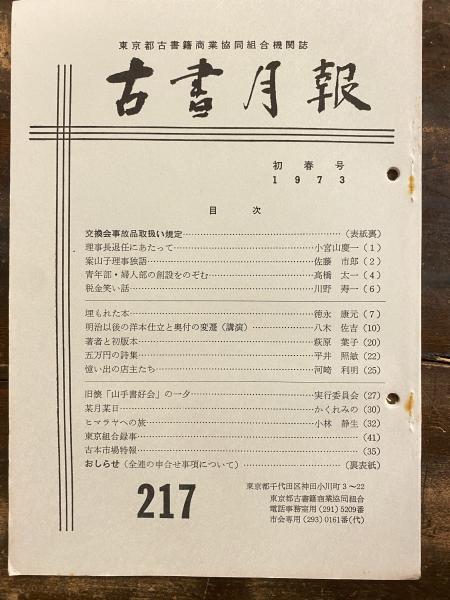 東京都古書籍商業協同組合機関誌
古書月報
初春号
1973
目次
交換会事故品取扱い規定……(表紙裏)
理事長退任にあたって……小宮山慶一(1)
案山子理事独語……佐藤 市郎(2)
青年部・婦人部の創設をのぞむ……高橋 太一(4)
税金笑い話……川野 寿一(6)
埋もれた本……徳永 康元(7)
明治以後の洋本仕立と奥付の変遷(講演)……八木 佐吉(10)
著者と初版本……萩原 葉子(20)
五万円の詩集……平井 照敏(22)
憶い出の店主たち……河崎 利明(25)
旧懐「山手書好会」の一夕……実行委員会(27)
某月某日……かくれみの(30)
ヒマラヤへの旅……小林 静生(32)
東京組合録事……(41)
古本市場特報……(35)
おしらせ(全連の申合せ事項について)……(裏表紙)
217
東京都千代田区神田小川町3〜22
東京都古書籍商業協同組合
電話事務室用(291)5209番
市会専用(293)0161番(代)